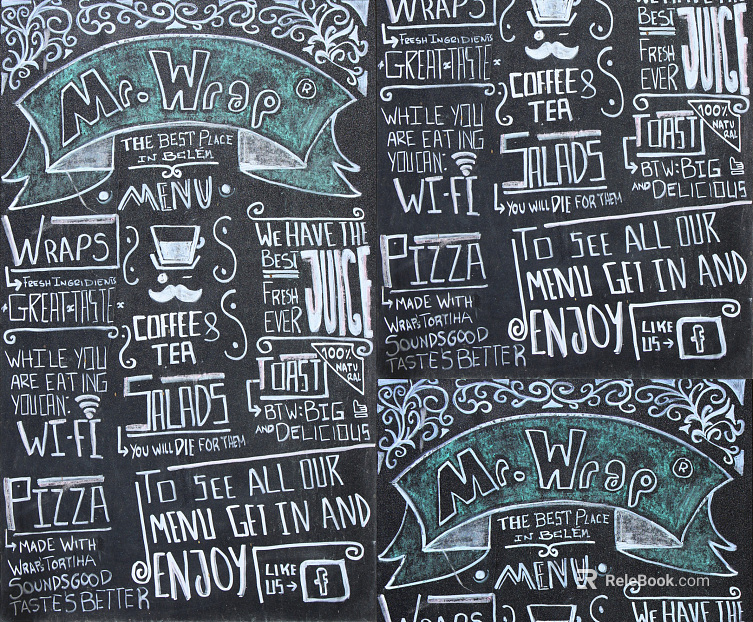 Mr. Wrap ®
THE BEST PLACE
IN BELÉM
MENU
WRAPS
FRESH INGRIDIENTS
GREAT TASTE
WHILE YOU
ARE EATING
YOU CAN:
WI-FI
PIZZA
MADE WITH
WRAP'S TORTIHA
SOUNDSGOOD
TASTE'S BETTER
COFFEE &
TEA
SALADS
YOU WILL DIE FOR THEM
WE HAVE THE
BEST
FRESH
EVER
JUICE
100%
NATU
RAL
TOAST
BTW: BIG
AND DELICIOUS
TO SEE ALL OUR
MENU GET IN AND
ENJOY
LIKE
US → f
WRAPS
FRESH INGRIDIENTS
GREAT TASTE
WHILE YOU
ARE EATING
YOU CAN:
WI-FI
PIZZA
MADE WITH
WRAP'S TORTIHA
SOUNDSGOOD
TASTE'S BETTER
COFFEE &
TEA
SALADS
YOU WILL DIE FOR THEM
WE HAVE THE
BEST
FRESH
EVER
JUICE
100%
NATU
RAL
TOAST
BTW: BIG
AND DELICIOUS
TO SEE ALL OUR
MENU GET IN AND
ENJOY
LIKE
US → f
Mr. Wrap ®
THE BEST PLACE
IN BELÉM
MENU
WRAPS
WE HAVE THE
ReleBook.com